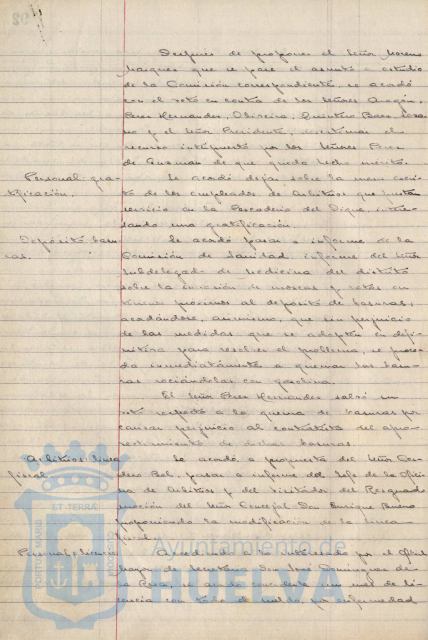 Después de proponer el Señor Moreno
Marquez que se pase el asunto a estudio
de la Comisión correspondiente, se acordó
con el voto en contra de los Señores Aragón,
Perez Hernandez, Oliveira, Quintero Baez,
no y el Señor Presidente, desestimar el
recurso interpuesto por los Señores Perez
de Guzman de que queda hecho mérito.
Personal: gra- Se acordó dejar sobre la mesa escrito
tificación. de los empleados de Arbitrios que prestan
servicio en la Pescaderia del Dique, intere-
sando una gratificación.
Depósito basu- Se acordó pasar a informe de la
ras. Comisión de Sanidad, informe del Señor
Subdelegado de Medicina del distrito
sobre la invasión de moscas y ratas en
próximos al depósito de basuras,
acordándose, asimismo, que sin perjuicio
de las medidas que se adopten en defi-
nitiva para resolver el problema, se proce-
da inmediatamente a quemar las basu-
ras rociándolas con gasolina.
El Señor Perez Hernandez salvó su
voto respecto a la quema de basuras por
causar perjuicio al contratista del apro-
vechamiento de dichas basuras.
Arbitrios: linea Se acordó, a propuesta del Señor
fiscal. pasar a informe del Jefe de la Ofici-
na de Arbitrios y del Visitador del Resguardo
moción del Señor Concejal Don Enrique Bueno
proponiendo la modificación de la linea
fiscal.
Personal: licencia Accediendo a lo interesado por el Oficial
mayor de Secretaría Don José Dominguez de
se acordó concederle un mes de li-
cencia con todo el sueldo, por enfermedad
PORTUS MARIS
ET TERRÆ
CUSTODIA
Ayuntamiento de
HUELVA